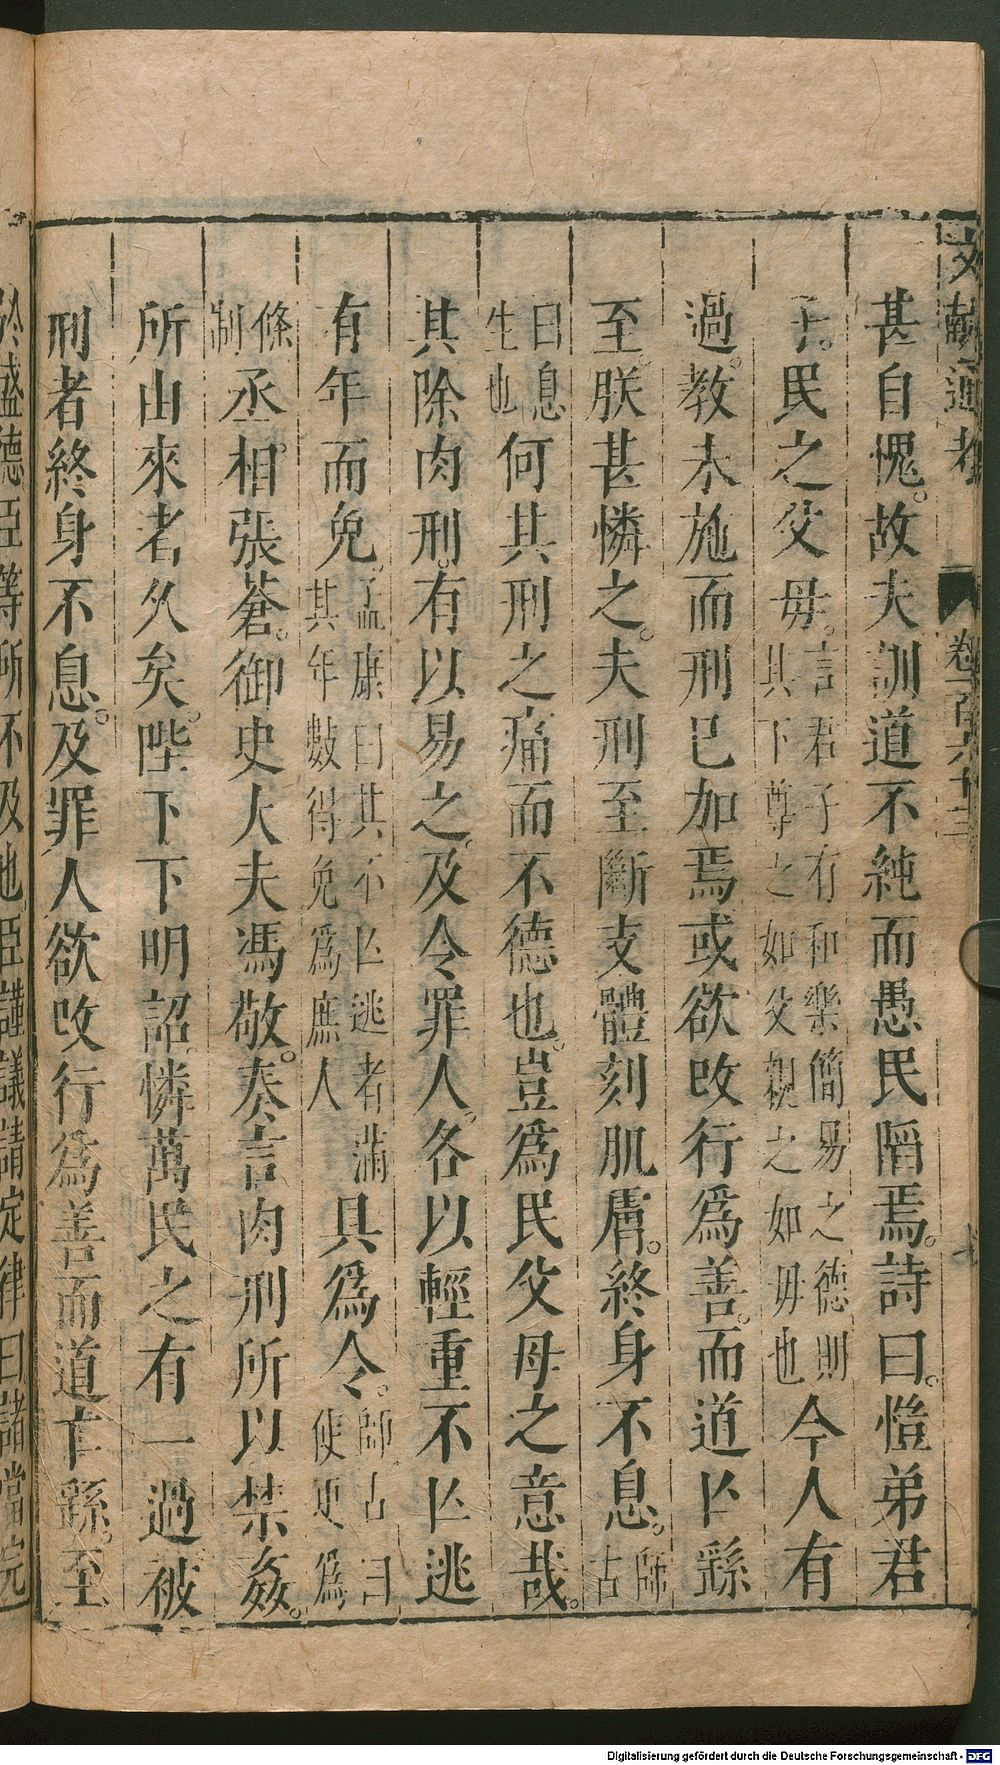 文獻通考 卷一百六十三
甚自愧。故夫訓道不純而愚民陷焉。詩曰。愷弟君
子。民之父母。言君子有和樂簡易之德則其下尊之如父親之如母也今人有
過。教未施而刑已加焉或欲改行爲善。而道亾繇
至。朕甚憐之。夫刑至斷支體刻肌膚。終身不息。師古
曰息生也何其刑之痛而不德也。豈爲民父母之意哉。
其除肉刑。有以易之。及令罪人。各以輕重不亾逃
有年而免。孟康曰其不亾逃者滿其年數得免爲庶人具爲令。師古曰使更爲
條制丞相。張蒼。御史大夫馮敬。奏言肉刑所以禁姦。
所由來者久矣。陛下下明詔。憐萬民之有一過被
刑者終身不息。及罪人欲改行爲善而道亾繇。至
於盛德臣等所不及也臣謹議請定律曰諸當完
Digitalisierung gefördert durch die Deutsche Forschungsgemeinschaft - DFG